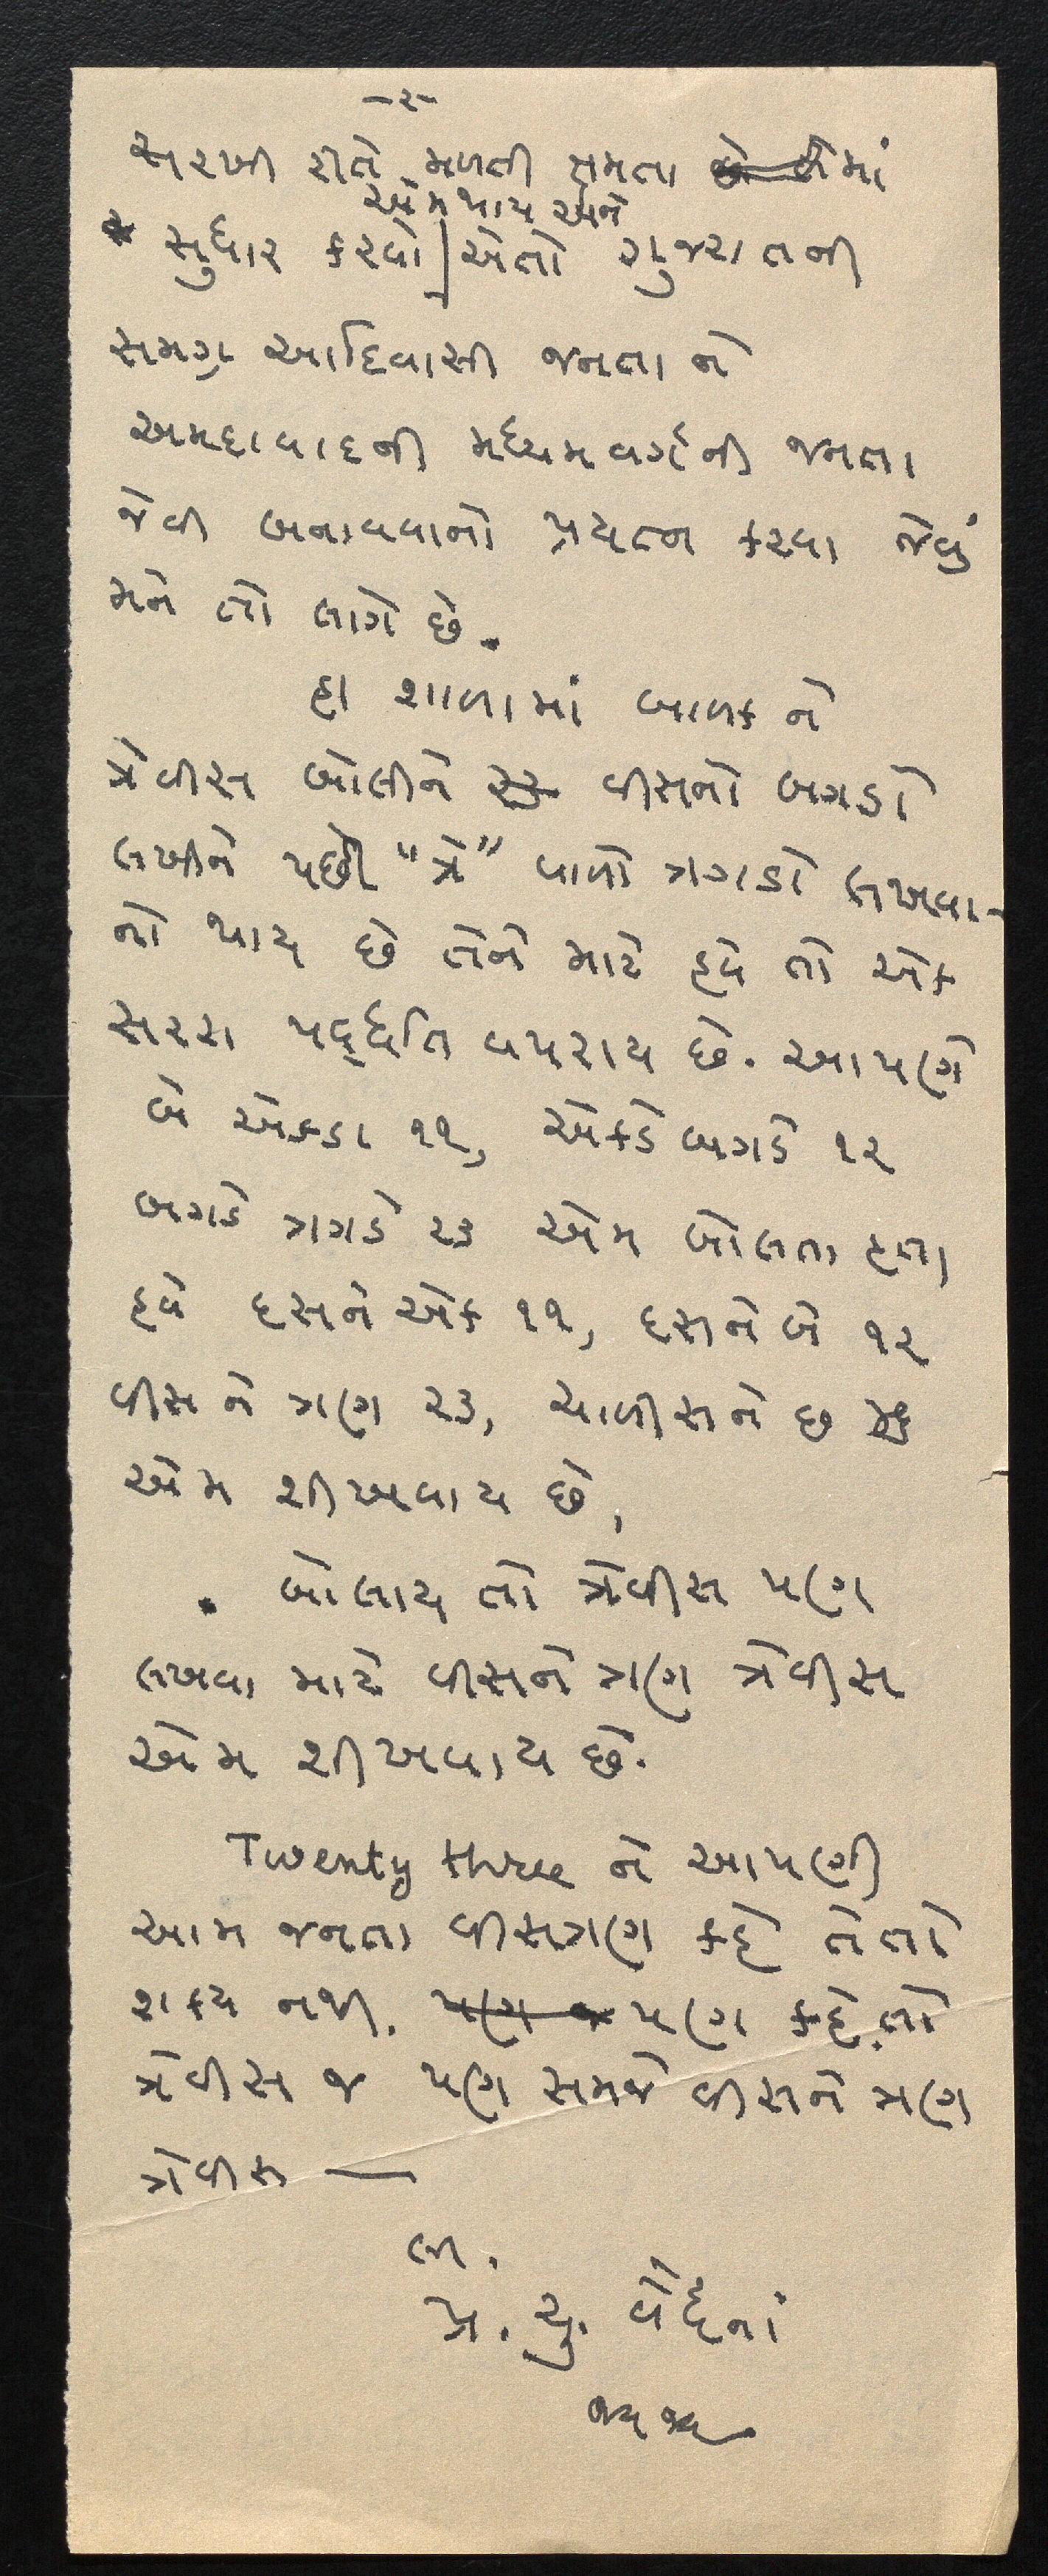 -૨-
સરખી રીતે મળતી મમતા છે તેમાં
એમ થાય અને
સુધાર કરવો એતો ગુજરાતની
સમગ્ર આદિવાસી જનતા ને
અમદાવાદની મધ્યમવર્ગની જનતા
જેવી બનાવવાનો પ્રયત્ન કરવા જેવું
મને તો લાગે છે.
હા શાળામાં બાળક ને
ત્રેવીસ બોલીને વીસનો બગડો
લખીને પછી "ત્રે" વાળો ત્રગડો લખવા-
નો થાય છે તેને માટે હવે તો એક
સરસ પદ્ધતિ વપરાય છે. આપણે
બે એકડા ૧૧, એકડે બગડે ૧૨
બગડે ત્રગડે ૨૩ એમ બોલતા હતા
હવે દસને એક ૧૧, દસને બે ૧૨
વીસ ને ત્રણ ૨૩, ચાળીસને છ ૪૬
એમ શીખવાય છે,
બોલાય તો ત્રેવીસ પણ
લખવા માટે વીસને ત્રણ ત્રેવીસ
એમ શીખવાય છે.
Twenty three ને આપણી
આમ જનતા વીસત્રણ કહે તે તો
શક્ય નથી. પણ પણ કહે તો
ત્રેવીસ જ પણ સમજે વીસને ત્રણ
ત્રેવીસ —
લી.
પ્ર. ચુ. વૈદ્યનાં
જય જય